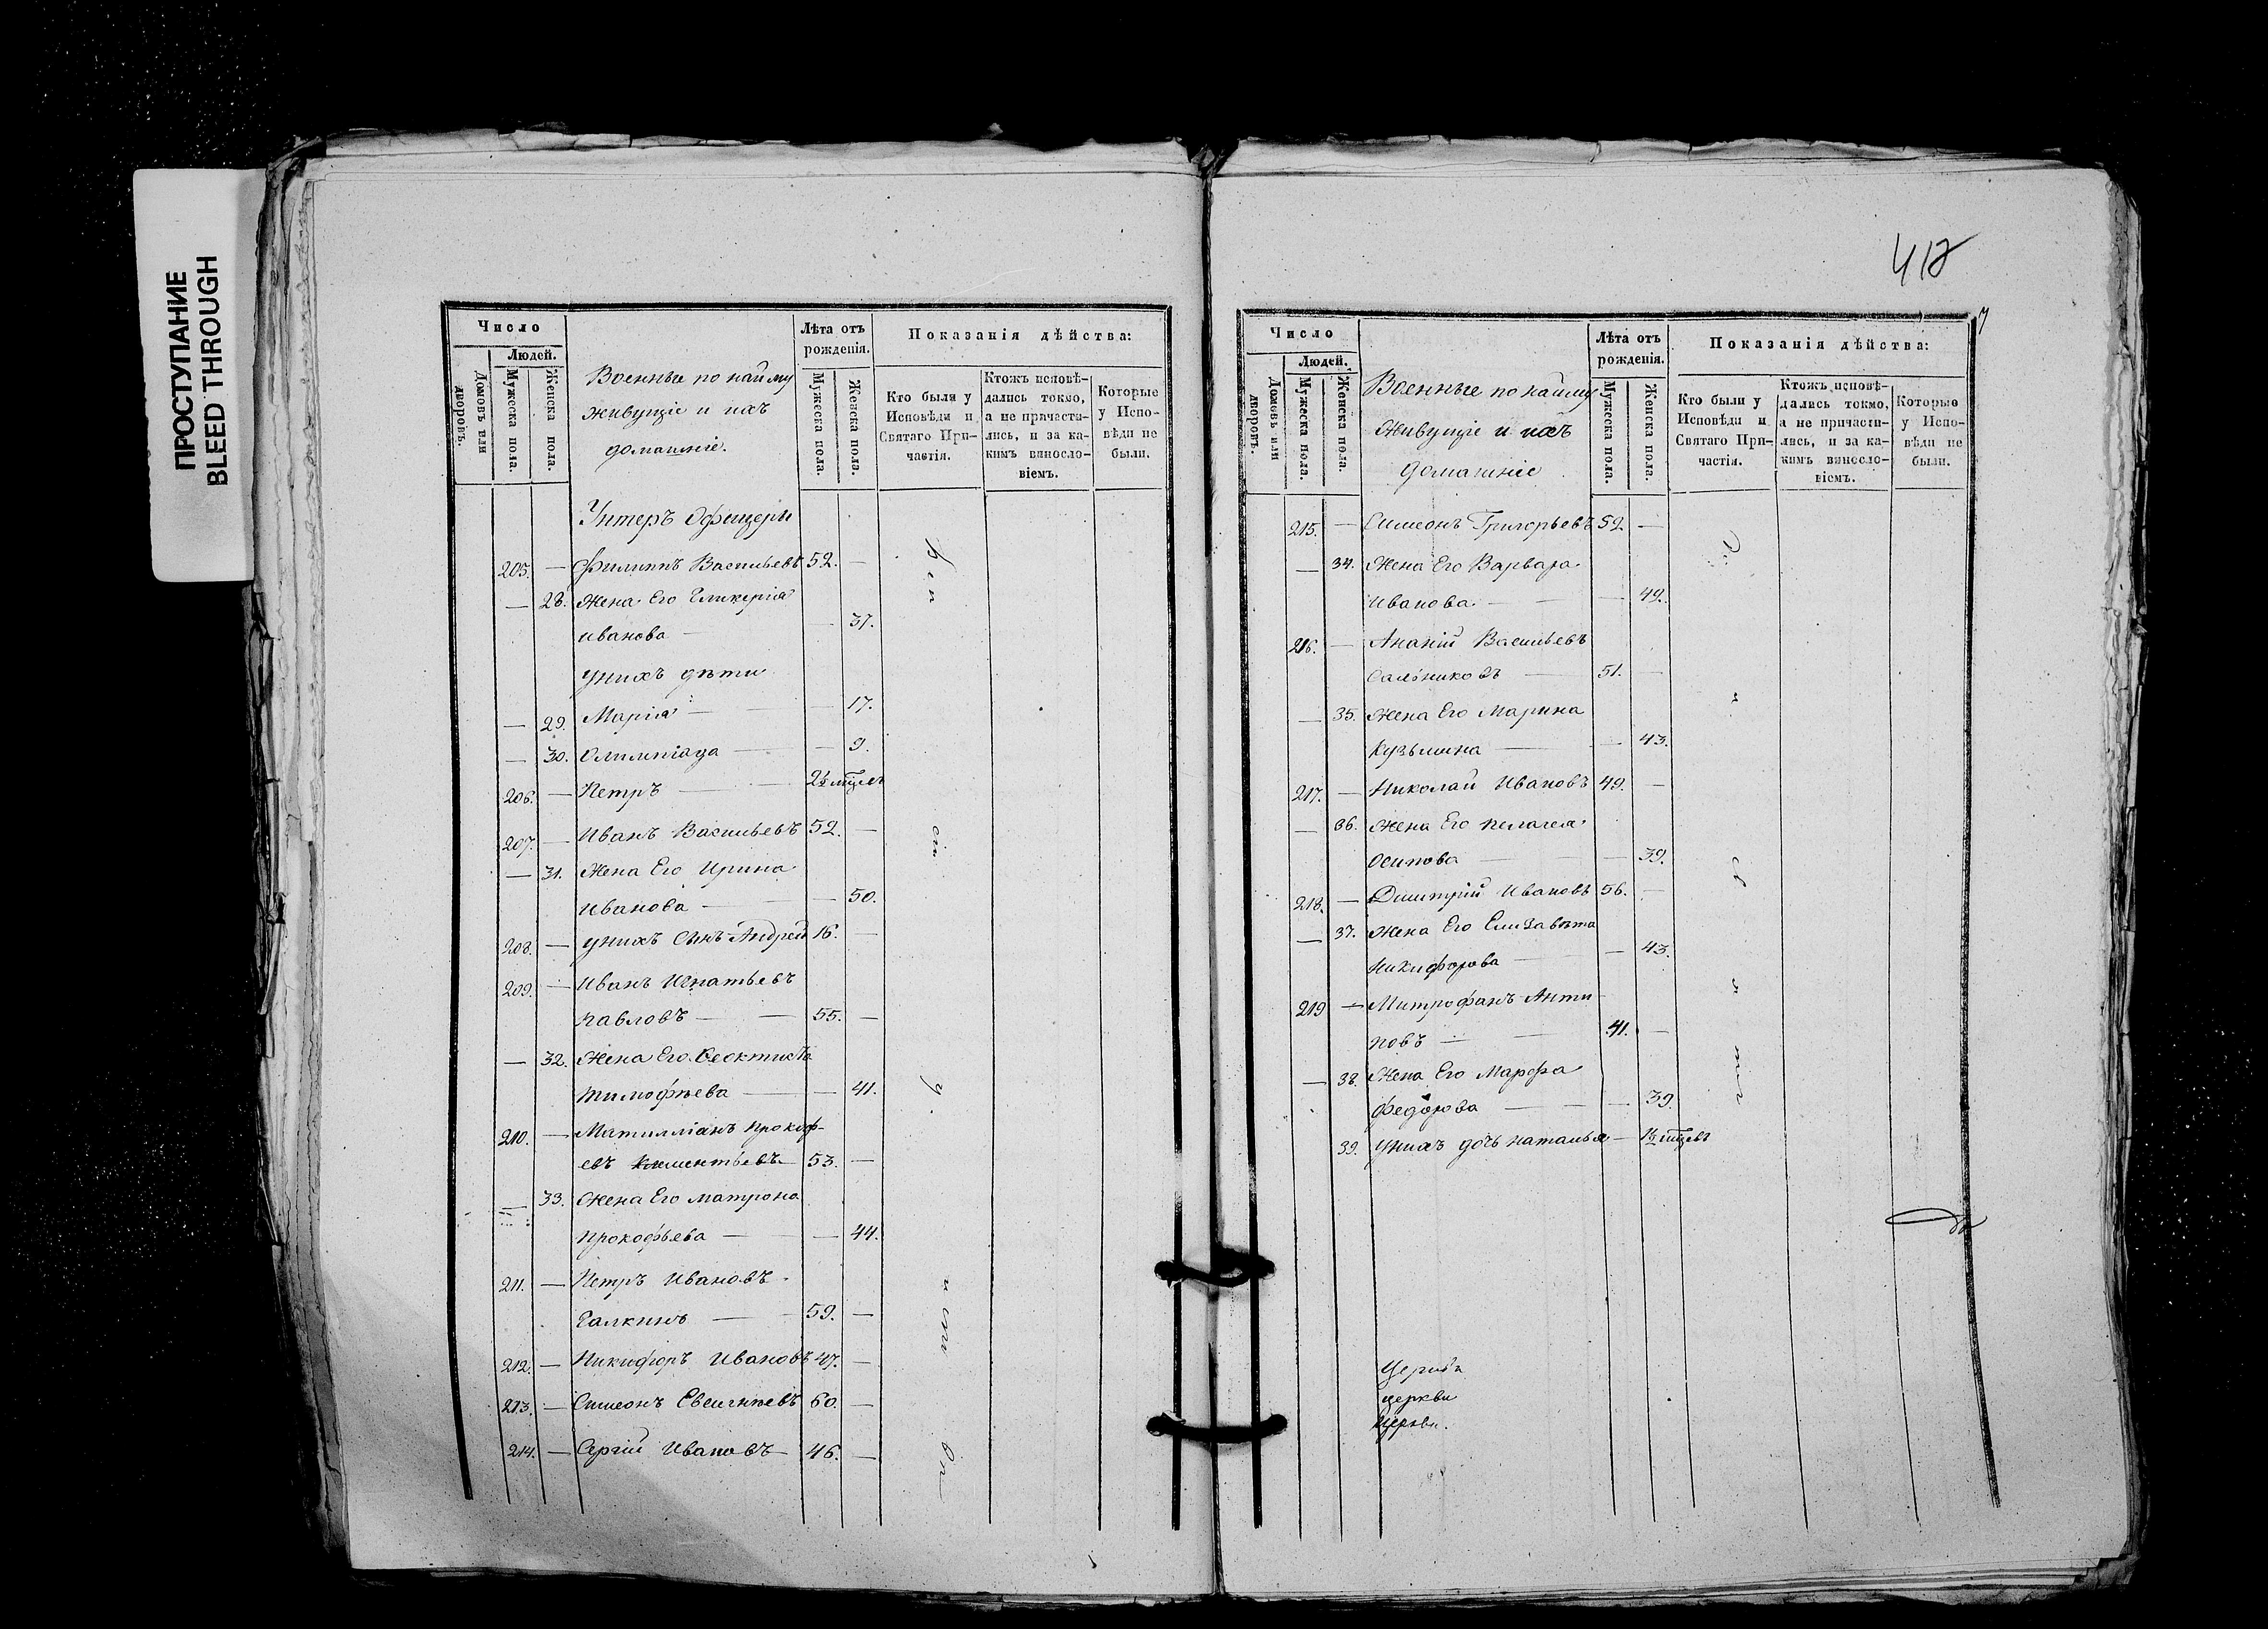 ПРОСТУПАНИЕ
BLEED THROUGH
Число
Людей.
Домовъ или дворовъ.
Мужеска пола.
Женска пола.
Военные по найму
живущіе и ихъ
домашніе.
Лѣта отъ рожденія.
Мужеска пола.
Женска пола.
Показанія дѣйства:
Кто были у Исповѣди и Святаго Причастія.
Ктожъ исповѣдались токмо, а не причастились, и за какимъ винословіемъ.
Которые у Исповѣди не были.
Унтеръ Офицеры
205. — Филиппъ Васильевъ 52. —
— 28. Жена Его Гликерія
Иванова — — 37.
У нихъ дѣти
— 29. Марія — — 17.
— 30. Олимпіада — — 9.
206. — Петръ —
207. — Иванъ Васильевъ 52. —
— 31. Жена Его Ирина
Иванова — — 50.
208. — у нихъ Сынъ Андрей 16. —
209. — Иванъ Игнатьевъ
Павловъ — — 55. —
— 32. Жена Его Феоктиста
Тимофѣева — — 41.
210. — Прокофьевъ Климентьевъ — 53. —
— 33. Жена Его Матрона
Прокофьева — — 44.
211. — Петръ Ивановъ
Галкинъ — — 59. —
212. — Никифоръ Ивановъ 47. —
213. — Симеонъ Евсигнѣевъ 60. —
214. — Сергій Ивановъ — 46. —
418
Число
Людей.
Домовъ или дворовъ.
Мужеска пола.
Женска пола.
Военные по найму
живущіе и ихъ
домашніе
Лѣта отъ рожденія.
Мужеска пола.
Женска пола.
Показанія дѣйства:
Кто были у Исповѣди и Святаго Причастія.
Ктожъ исповѣдались токмо, а не причастились, и за какимъ винословіемъ.
Которые у Исповѣди не были.
215. — Симеонъ Григорьевъ 52. —
— 34. Жена Его Варвара
Иванова — — 49.
216. — Ананій Васильевъ
Сальниковъ — 51. —
— 35. Жена Его Марина
Кузьмина — — 43.
217. — Николай Ивановъ 49. —
— 36. Жена Его Пелагея
Осипова — — 39.
218. — Димитрій Ивановъ 56. —
— 37. Жена Его Елизавета
Никифорова — — 43.
219 — Митрофанъ Анти-
повъ — — 41. —
— 38. Жена Его Марфа
Федорова — — 39.
39. У нихъ дочь Наталья —
церкви
церкви.